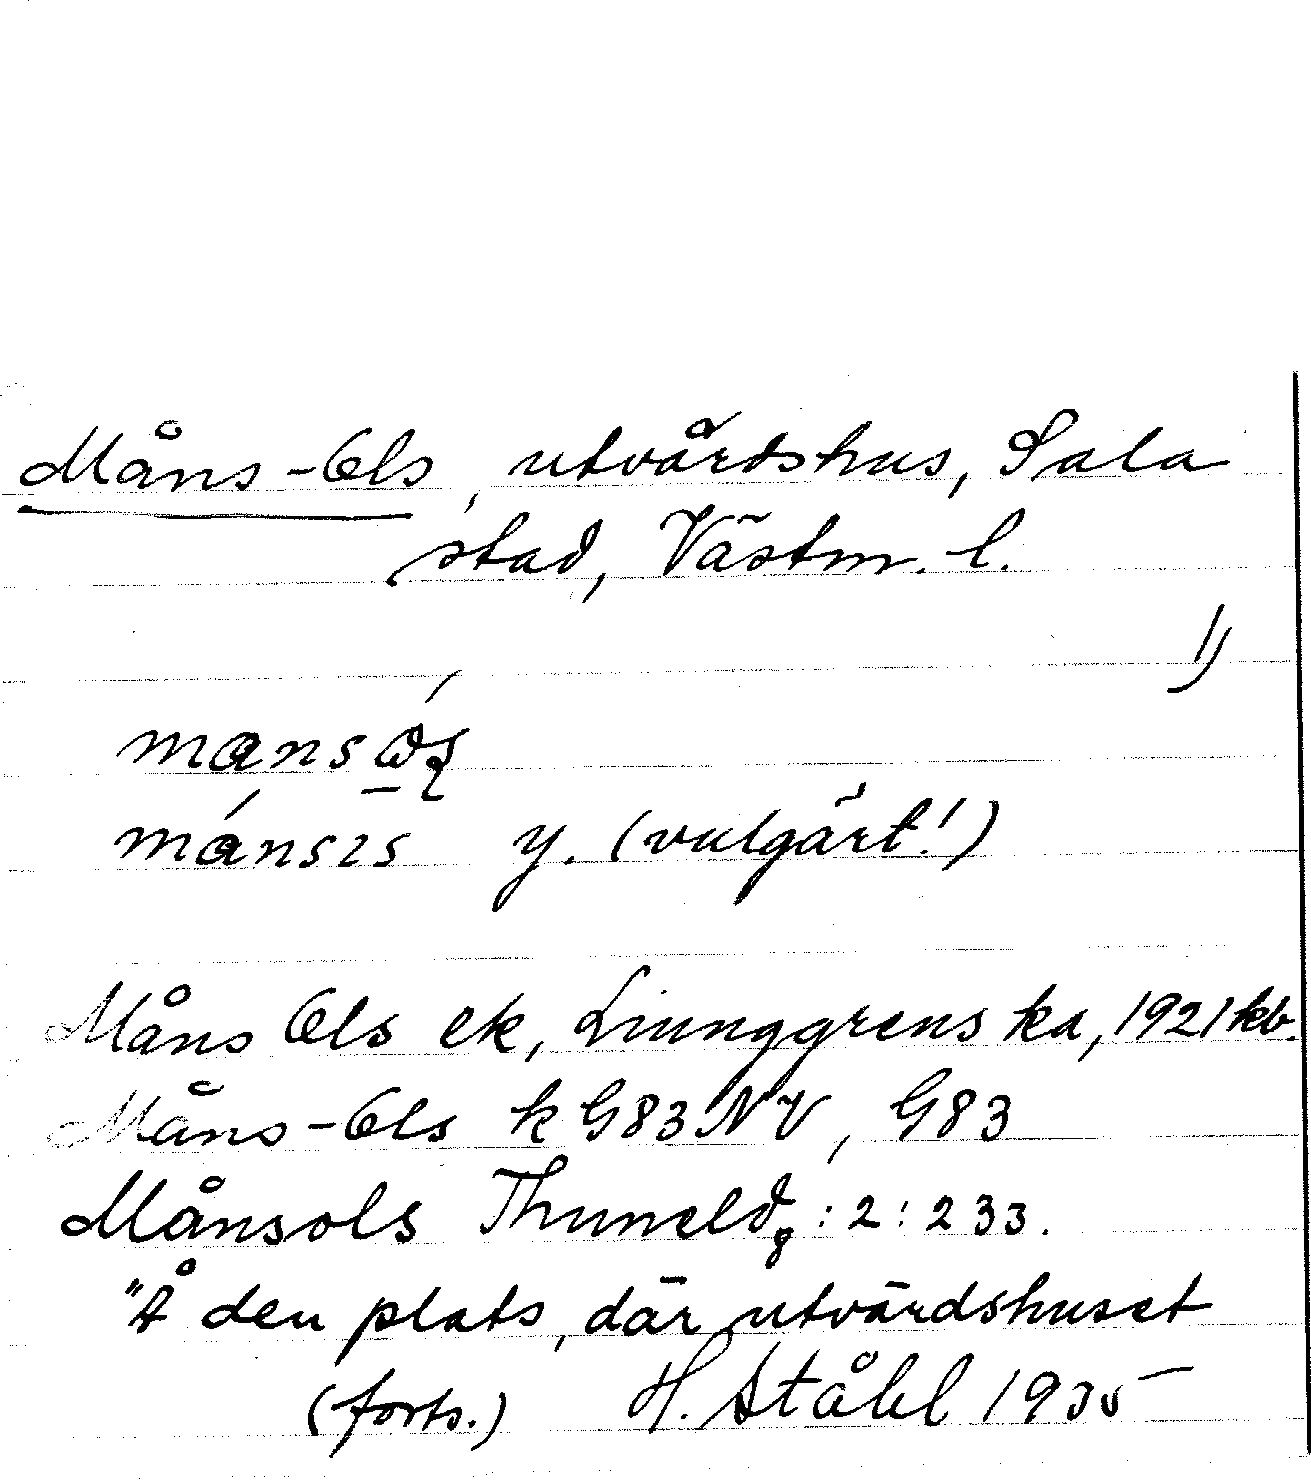 Måns-Ols, utvårdshus, Sala
stad, Västm. l.
1)
måns
mánsis y. (vulgärt!)
Måns Ols ek, Liunggrens ka, 1921 kb.
Måns-Ols k G83NV, G83
Månsols Thuneld, :2:233.
"Å den plats, där utvärdshuset
(forts.) H. Ståhl 1935